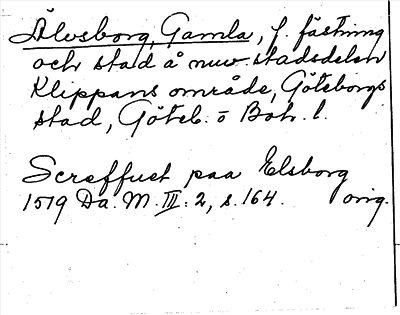 Älvsborg, Gamla, f. fästning
och stad å nuv. stadsdelen
Klippans område, Göteborgs
stad, Göteb. o Boh. l.
Screffuet paa Elsborg
1519 Da. M. III: 2, s. 164. orig.